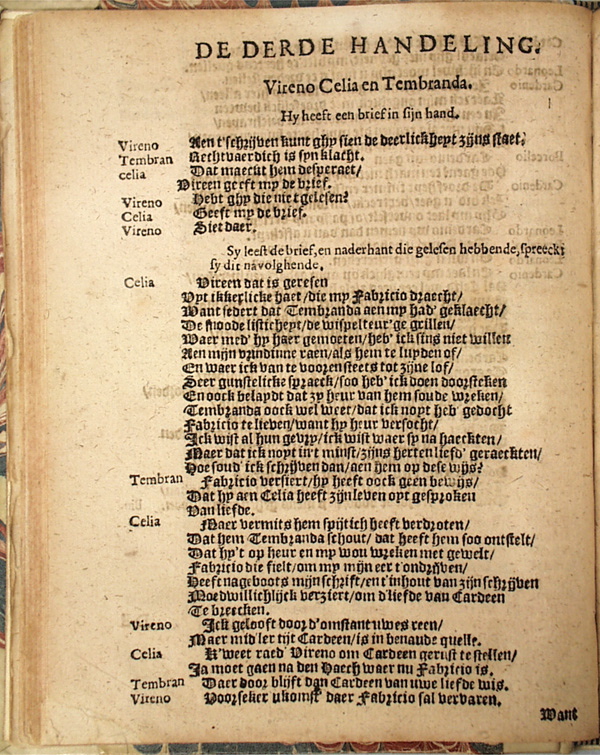 DE DERDE HANDELING.
Vireno Celia en Tembranda.
Hy heeft een brief in sijn hand.
Vireno Aen t'schrijven kunt ghy sien de deerlickheyt zijns staet,
Tembran Rechtvaerdich is syn klacht.
celia Dat maeckt hem desperaet/
Vireen geeft my de brief.
Vireno Hebt ghy die niet gelesen?
Celia Geeft my de brief.
Vireno Siet daer.
Sy leest de brief, en naderhant die gelesen hebbende, spreeckt
sy dit navolghende.
Celia Vireen dat is geresen
Uyt ikkerlicke haet/die my Fabricio draecht/
Want sedert dat Tembranda aen my had' geklaecht/
De snoode listicheyt/de wispelteur'ge grillen/
Waer med' hy haer gemoeten/heb' ick sins niet willen
Aen mijn vrindinne raen/als hem te luyden of/
En waer ick van te vooren steets tot zijne lof/
Seer gunstelicke spraeck/soo heb' ick doen doorsteken
En oock belaydt dat zy heur van hem soude wreken/
Tembranda oock wel weet/dat ick noyt heb' gedocht
Fabricio te lieven/want hy heur versocht/
Ick wist al hun gevry/ick wist waer sy na haeckten/
Maer dat ick noyt in't minst/zijns herten liefd' geraeckten/
Hoe soud' ick schrijven dan/aen hem op dese wijs?
Tembran Fabricio versiert/hy heeft oock geen bewijs/
Dat hy aen Celia heeft zijn leven oyt gesproken
Van liefde.
Celia Maer vermits hem spijt ich heeft verdroten/
Dat hem Tembranda schout/ dat heeft hem soo ontstelt/
Dat hy't op heur en my wou wreken met gewelt/
Fabricio die fielt/om my mijn eer t'ondrijven/
Heeft nageboots mijn schrift/en t'inhout van zijn schrijven
Moedwillichlijck verziert/om d'liefde van Cardeen
Te breecken.
Vireno Ick gelooft door d'omstant uwes reen/
Maer mid'ler tijt Cardeen/is in benaude quelle.
Celia K'weet raed' Vireno om Cardeen gerust te stellen/
Ja moet gaen na den Haech waer nu Fabricio is.
Tembran Daer door blijft dan Cardeen van uwe liefde wis.
Vireno Voorseker u komst daer Fabricio sal vervaren.
Want